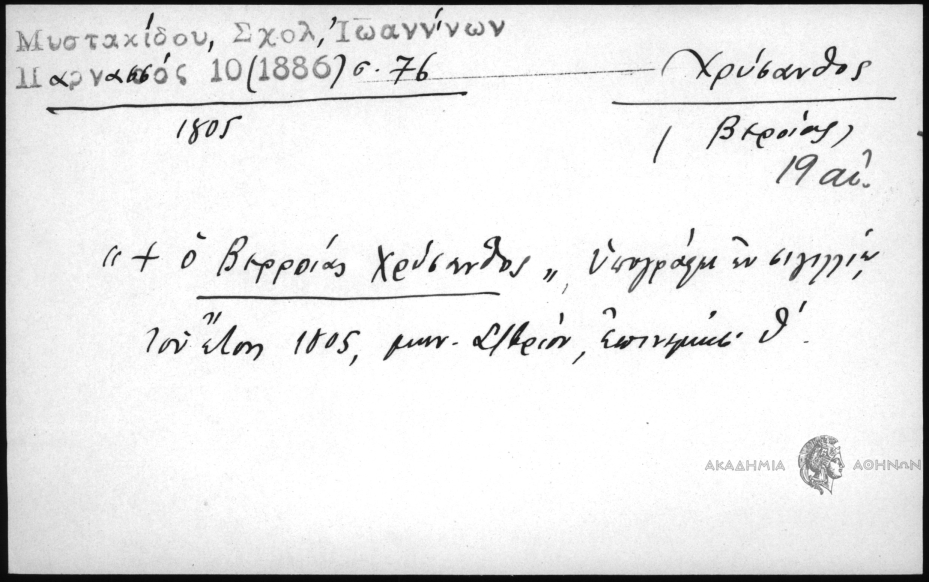 Μυστακίδου, Σχολ, Ἰωαννίνων
Παρνασσός 10 (1886) σ. 76
Χρύσανθος
1805
(Βεροίας)
19 αἰ.
"+ ὁ Βερροίας Χρύσανθος", ὑπογράφει ἐν σιγιλλίῳ
τοῦ ἔτους 1805, μην. ἐπινεμήσ. θ'.
ΑΚΑΔΗΜΙΑ ΑΘΗΝΩΝ